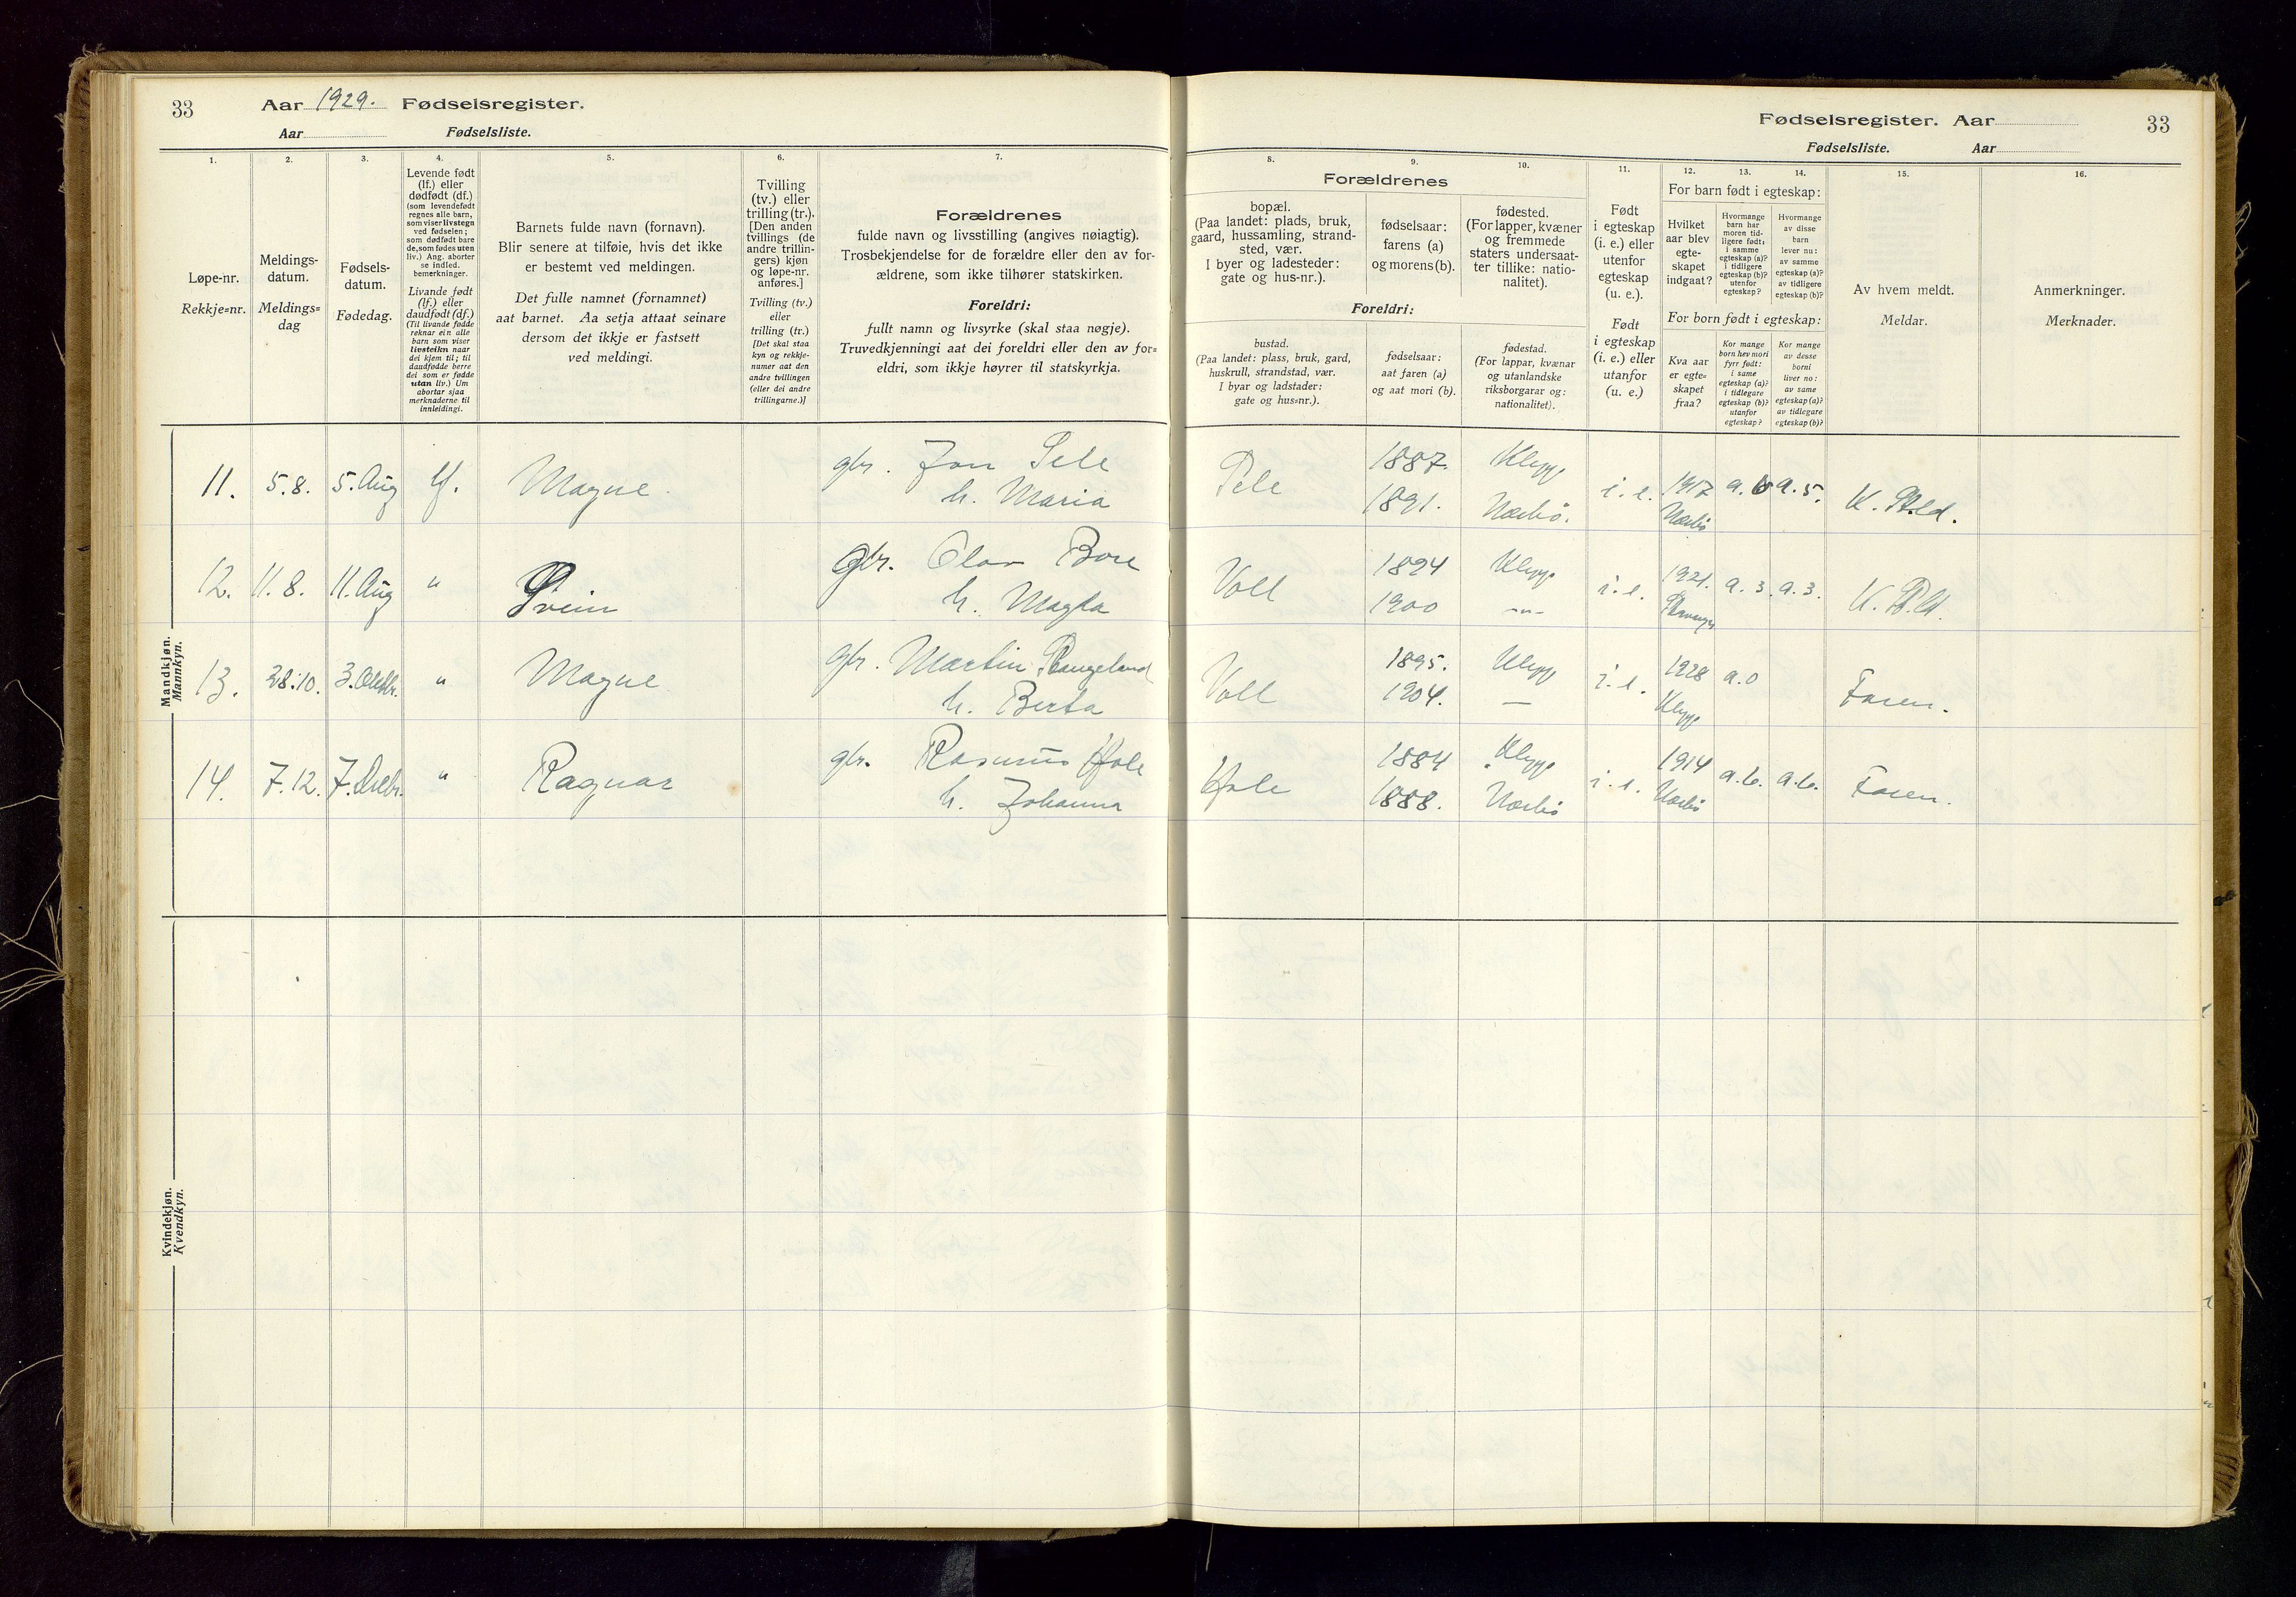 33
Aar 1929. Fødselsregister.
Aar Fødselsliste.
1.
Løpe-nr.
Rekkje=nr.
2.
Meldings-
datum.
Meldings=
dag
3.
Fødsels-
datum.
Fødedag.
4.
Levende født
(lf.) eller
dødfødt (df.)
(som levendefødt
regnes alle barn,
som viser livstegn
ved fødselen;
som dødfødt bare
de, som fødes uten
liv.) Ang. aborter
se indled.
bemerkninger.
Livande født
(lf.) eller
daudfødt (df.)
(Til livande fødde
reknar ein alle
barn som viser
livsteikn naar
dei kjem til; til
daudfødde berre
dei som er fødde
utan liv.) Um
abortar sjaa
merknaderne til
innleidingi.
5.
Barnets fulde navn (fornavn).
Blir senere at tilføie, hvis det ikke
er bestemt ved meldingen.
Det fulle namnet (fornamnet)
aat barnet. Aa setja attaat seinare
dersom det ikkje er fastsett
ved meldingi.
6.
Tvilling
(tv.) eller
trilling (tr.).
[Den anden
tvillings (de
andre trillin-
gers) kjøn
og løpe-nr.
anføres.]
Tvilling (tv.)
eller
trilling (tr.)
[Det skal staa
kyn og rekkje-
numer aat den
andre tvillingen
(eller dei andre
trillingarne.)]
7.
Forældrenes
fulde navn og livsstilling (angives nøiagtig).
Trosbekjendelse for de forældre eller den av for-
ældrene, som ikke tilhører statskirken.
Foreldri:
fullt namn og livsyrke (skal staa nøgje).
Truvedkjenningi aat dei foreldri eller den av for=
eldri, som ikkje høyrer til statskyrkja.
Mandkjøn.
Mannkyn.
11. 5.8. 5. Aug lf. Magne. gbr. Jon Pele
h. Maria
12. 11. 8. 11. Aug " Svein gbr. Olav Bore
h. Magda
13. 28.10. 3. Oktbr. " Magne gbr. Martin Stangeland
h. Berta
14. 7.12. 7. Decbr. " Ragnar gbr. Rasmus Hole
h. Johanna
Kvindekjøn.
Kvendkyn.
Fødselsregister. Aar
33
Fødselsliste. Aar
Forældrenes
8.
bopæl.
(Paa landet: plads, bruk,
gaard, hussamling, strand-
sted, vær.
I byer og ladesteder:
gate og hus-nr.).
9.
fødselsaar:
farens (a)
og morens (b).
10.
fødested.
(For lapper, kvæner
og fremmede
staters undersaat-
ter tillike: natio-
nalitet).
Foreldri:
bustad.
(Paa landet: plass, bruk, gard,
huskrull, strandstad, vær.
I byar og ladstader:
gate og hus=nr.).
fødselsaar:
aat faren (a)
og aat mori (b).
fødestad.
(For lappar, kvænar
og utanlandske
riksborgarar og:
nationalitet).
11.
Født
i egteskap
(i. e.) eller
utenfor
egteskap
(u. e.).
Født
i egteskap
(i. e.) eller
utanfor
(u. e.)
12.
13.
14.
For barn født i egteskap:
Hvilket
aar blev
egte-
skapet
indgaat?
Hvormange
barn har
moren tid-
ligere født:
i samme
egteskap (a)?
i tidligere
egteskap (b)?
utenfor
egteskap?
Hvormange
av disse
barn
lever nu:
av samme
egteskap (a)?
av tidligere
egteskap (b)?
For born født i egteskap:
Kva aar
er egte=
skapet
fraa?
Kor mange
born hev mori
fyrr født:
i same
egteskap (a)?
i tidlegare
egteskap (b)?
utanfor
egteskap?
Kor mange
av desse
borni
liver no:
av same
egteskap (a)?
av tidlegare
egteskap (b)?
15.
Av hvem meldt.
Meldar.
16.
Anmerkninger.
Merknader.
Pele 1887. Klepp i. e. 1917 a. 6 a. 5.
1891. Nærbø. Nærbø
Voll 1894 Klepp i. e. 1921. a. 3. a. 3.
1900 -"- Stavanger
Voll 1895. Klepp i. e. 1928 a. 0 Faren.
1904. — Klepp
Hole 1884 Klepp i. e. 1914 a. 6. a. 6. Faren.
1888. Nærbø Nærbø